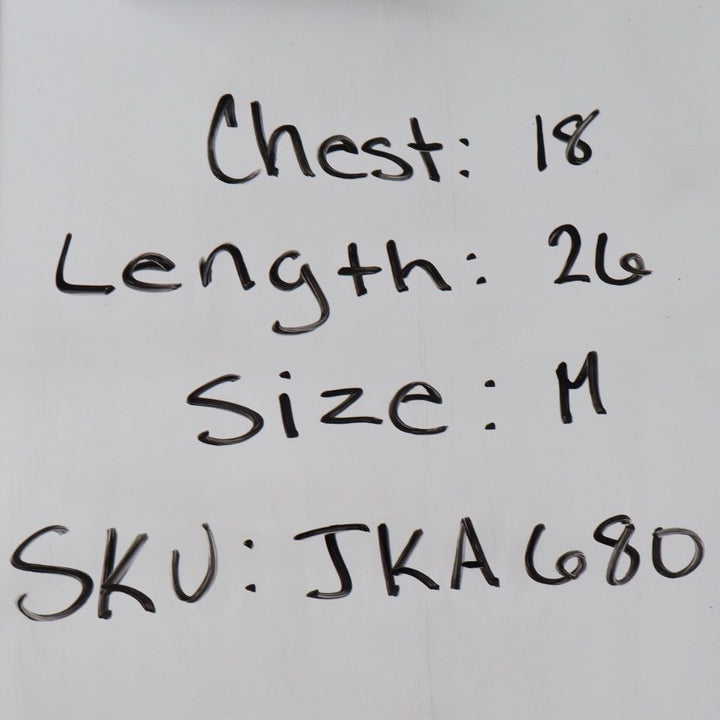 Chest: 18
Length: 26
Size: M
SKU: JKA680